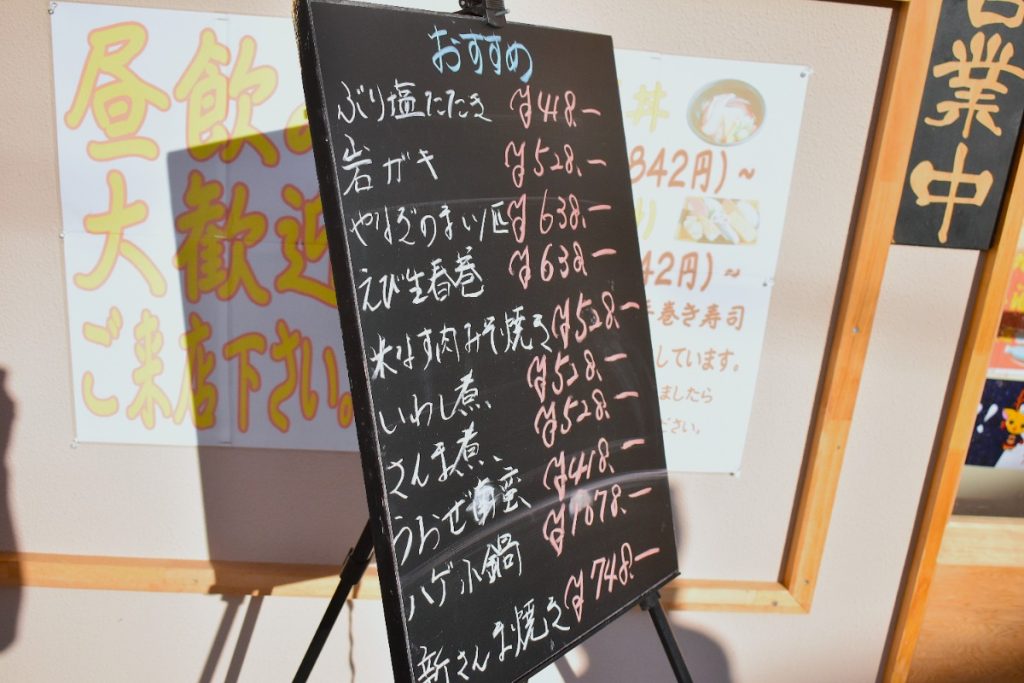 昼飲
大歓迎
ご来店下さい。
おすすめ
ぶり塩たたき ¥418.ー
岩ガキ ¥528.ー
¥638.ー
えび生春巻 ¥638ー
米なす肉みそ焼き ¥528.ー
いわし煮 ¥528.ー
さんま煮 ¥528.ー
¥418.ー
ハゲ小鍋 ¥1078.ー
新さんま焼き ¥748.ー
丼
842円)～
り
42円)～
手巻き寿司
しています。
ましたら
ださい。
営業中